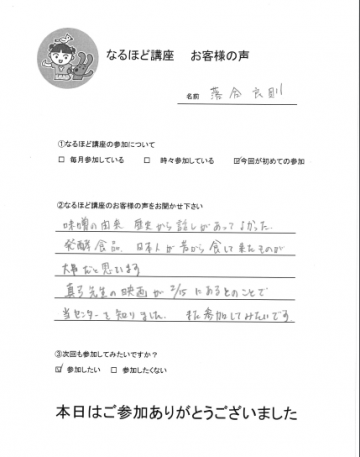 なるほど講座 お客様の声
名前 落合 良則
①なるほど講座の参加について
□ 毎月参加している □ 時々参加している ☑今回が初めての参加
②なるほど講座のお客様の声をお聞かせ下さい
味噌の由来 歴史から話しがあってよかった.
発酵食品 日本人が昔から食して来たものが
大事だと思います
真弓先生の映画が 2/15 にあるとのことで
当センターを知りました. また参加してみたいです
③次回も参加してみたいですか？
☑ 参加したい □ 参加したくない
本日はご参加ありがとうございました